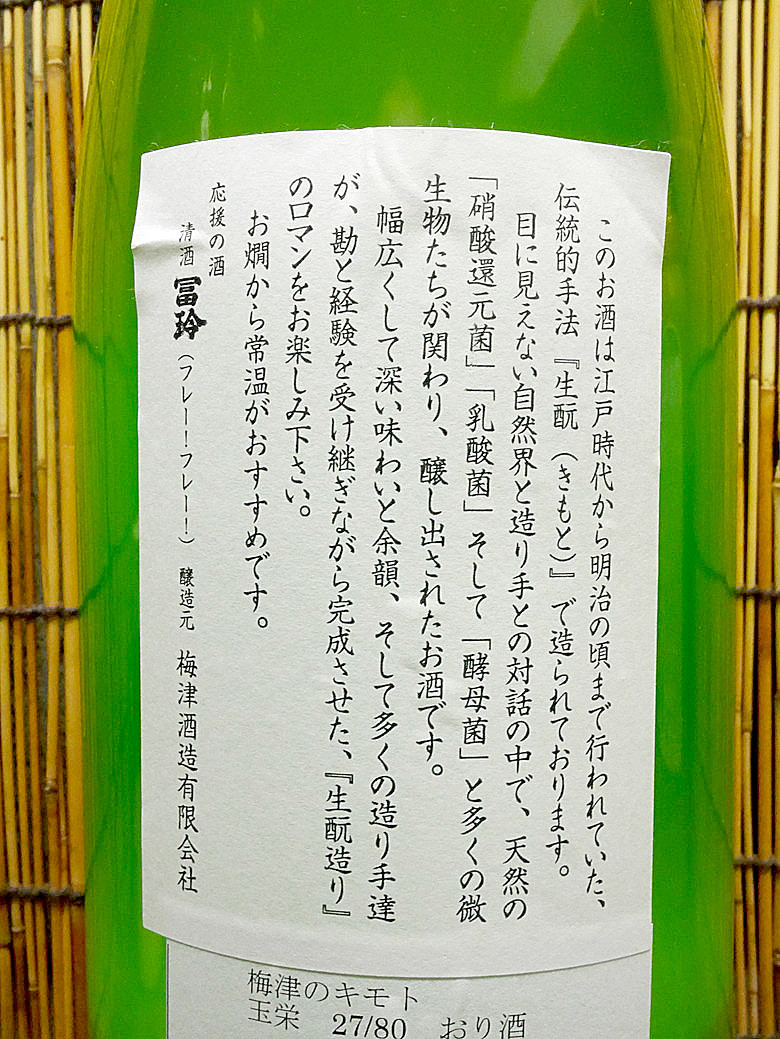 このお酒は江戸時代から明治の頃まで行われていた、
伝統的手法『生酛（きもと）』で造られております。
目に見えない自然界と造り手との対話の中で、天然の
「硝酸還元菌」「乳酸菌」そして「酵母菌」と多くの微
生物たちが関わり、醸し出されたお酒です。
幅広くして深い味わいと余韻、そして多くの造り手達
が、勘と経験を受け継ぎながら完成させた、『生酛造り』
のロマンをお楽しみ下さい。
お燗から常温がおすすめです。
応援の酒
清酒 冨玲（フレー！フレー！） 醸造元 梅津酒造有限会社
梅津のキモト
玉栄 27/80 おり酒